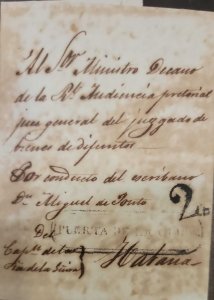 Al Sor. Ministro Decano
de la Rl. Audiencia pretorial
juez general del juzgado de
bienes de difuntos
Por conducto del escribano
Dn. Miguel de Porto
2
PUERTA DE
Del
Capn. de la
Habana